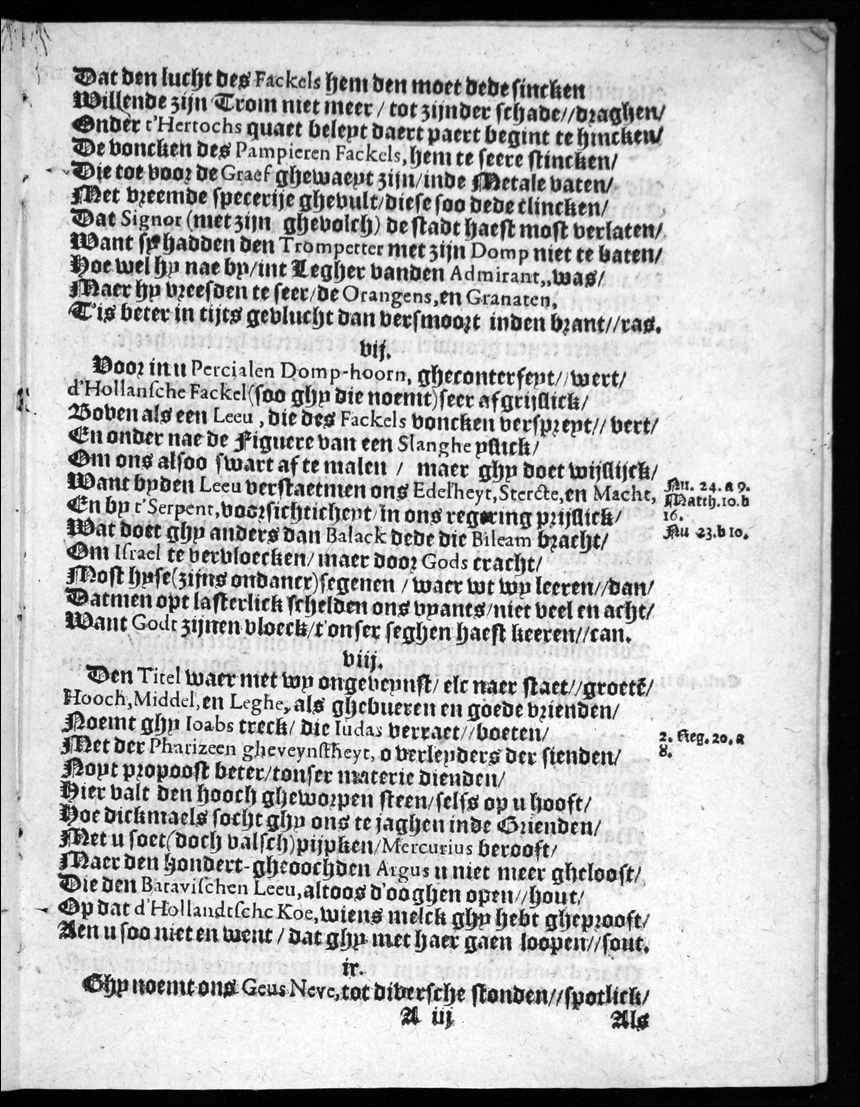 Dat den lucht des Fackels hem den moet dede sincken
Willende zijn Trom niet meer / tot zijnder schade//draghen/
Onder t'Hertochs quaet beleyt daert paert begint te hincken/
De voncken des Pampieren Fackels, hem te seere stincken/
Die tot voor de Graef ghewaeyt zijn/inde Metale vaten/
Met vreemde specerije ghevult/diese soo dede clincken/
Dat Signor (met zijn ghevolch) de stadt haest most verlaten/
Want sy hadden den Trompetter met zijn Domp niet te baten/
Hoe wel hy nae by/int Legher vanden Admirant,, was/
Maer hy vreesden te seer/de Orangens, en Granaten,
T'is beter in tijts gevlucht dan versmoort inden brant//ras.
vij.
Voor in u Percialen Domp-hoorn, gheconterfeyt//wert/
d'Hollansche Fackel(soo ghy die noemt)seer afgrijslick/
Boven als een Leeu, die des Fackels voncken verspreyt// vert/
En onder nae de Figuere van een Slanghe yslick/
Om ons alsoo swart af te malen / maer ghy doet wijslijck/
Want byden Leeu verstaetmen ons Edelheyt, Stercte, en Macht,
En by t'Serpent, voorsichticheyt/in ons regering prijslick/
Wat doet ghy anders dan Balack dede die Bileam bracht/
Om Israel te vervloecken/ maer door Gods cracht/
Most hyse(zijns ondancx)segenen / waer wt wy leeren//dan/
Datmen opt lasterlick schelden ons vyants/niet veel en acht/
Want Godt zijnen vloeck/t'onser seghen haest keeren//can.
Nu. 24. a 9.
Matth. 10. b
16.
Nu 23. b 10.
viij.
Den Titel waer met wy ongeveynst/ elc naer staet//groetē/
Hooch, Middel, en Leghe, als ghebueren en goede vrienden/
Noemt ghy Ioabs treck/ die Iudas verraet//boeten/
Met der Pharizeen gheveynstheyt, o verleyders der sienden/
Noyt propoost beter/tonser materie dienden/
Hier valt den hooch gheworpen steen/selfs op u hooft/
Hoe dickmaels socht ghy ons te jaghen inde Grienden/
Met u soet(doch valsch)pijpken/Mercurius berooft/
Maer den hondert-gheoochden Argus u niet meer ghelooft/
Die den Batavischen Leeu, altoos d'ooghen open//hout/
Op dat d'Hollandtsche Koe, wiens melck ghy hebt gheprooft/
Aen u soo niet en went / dat ghy met haer gaen loopen//sout.
2. Reg. 20. a
8.
ix.
Ghy noemt ons Geus Neve, tot diversche stonden//spotlick/
A iij Als